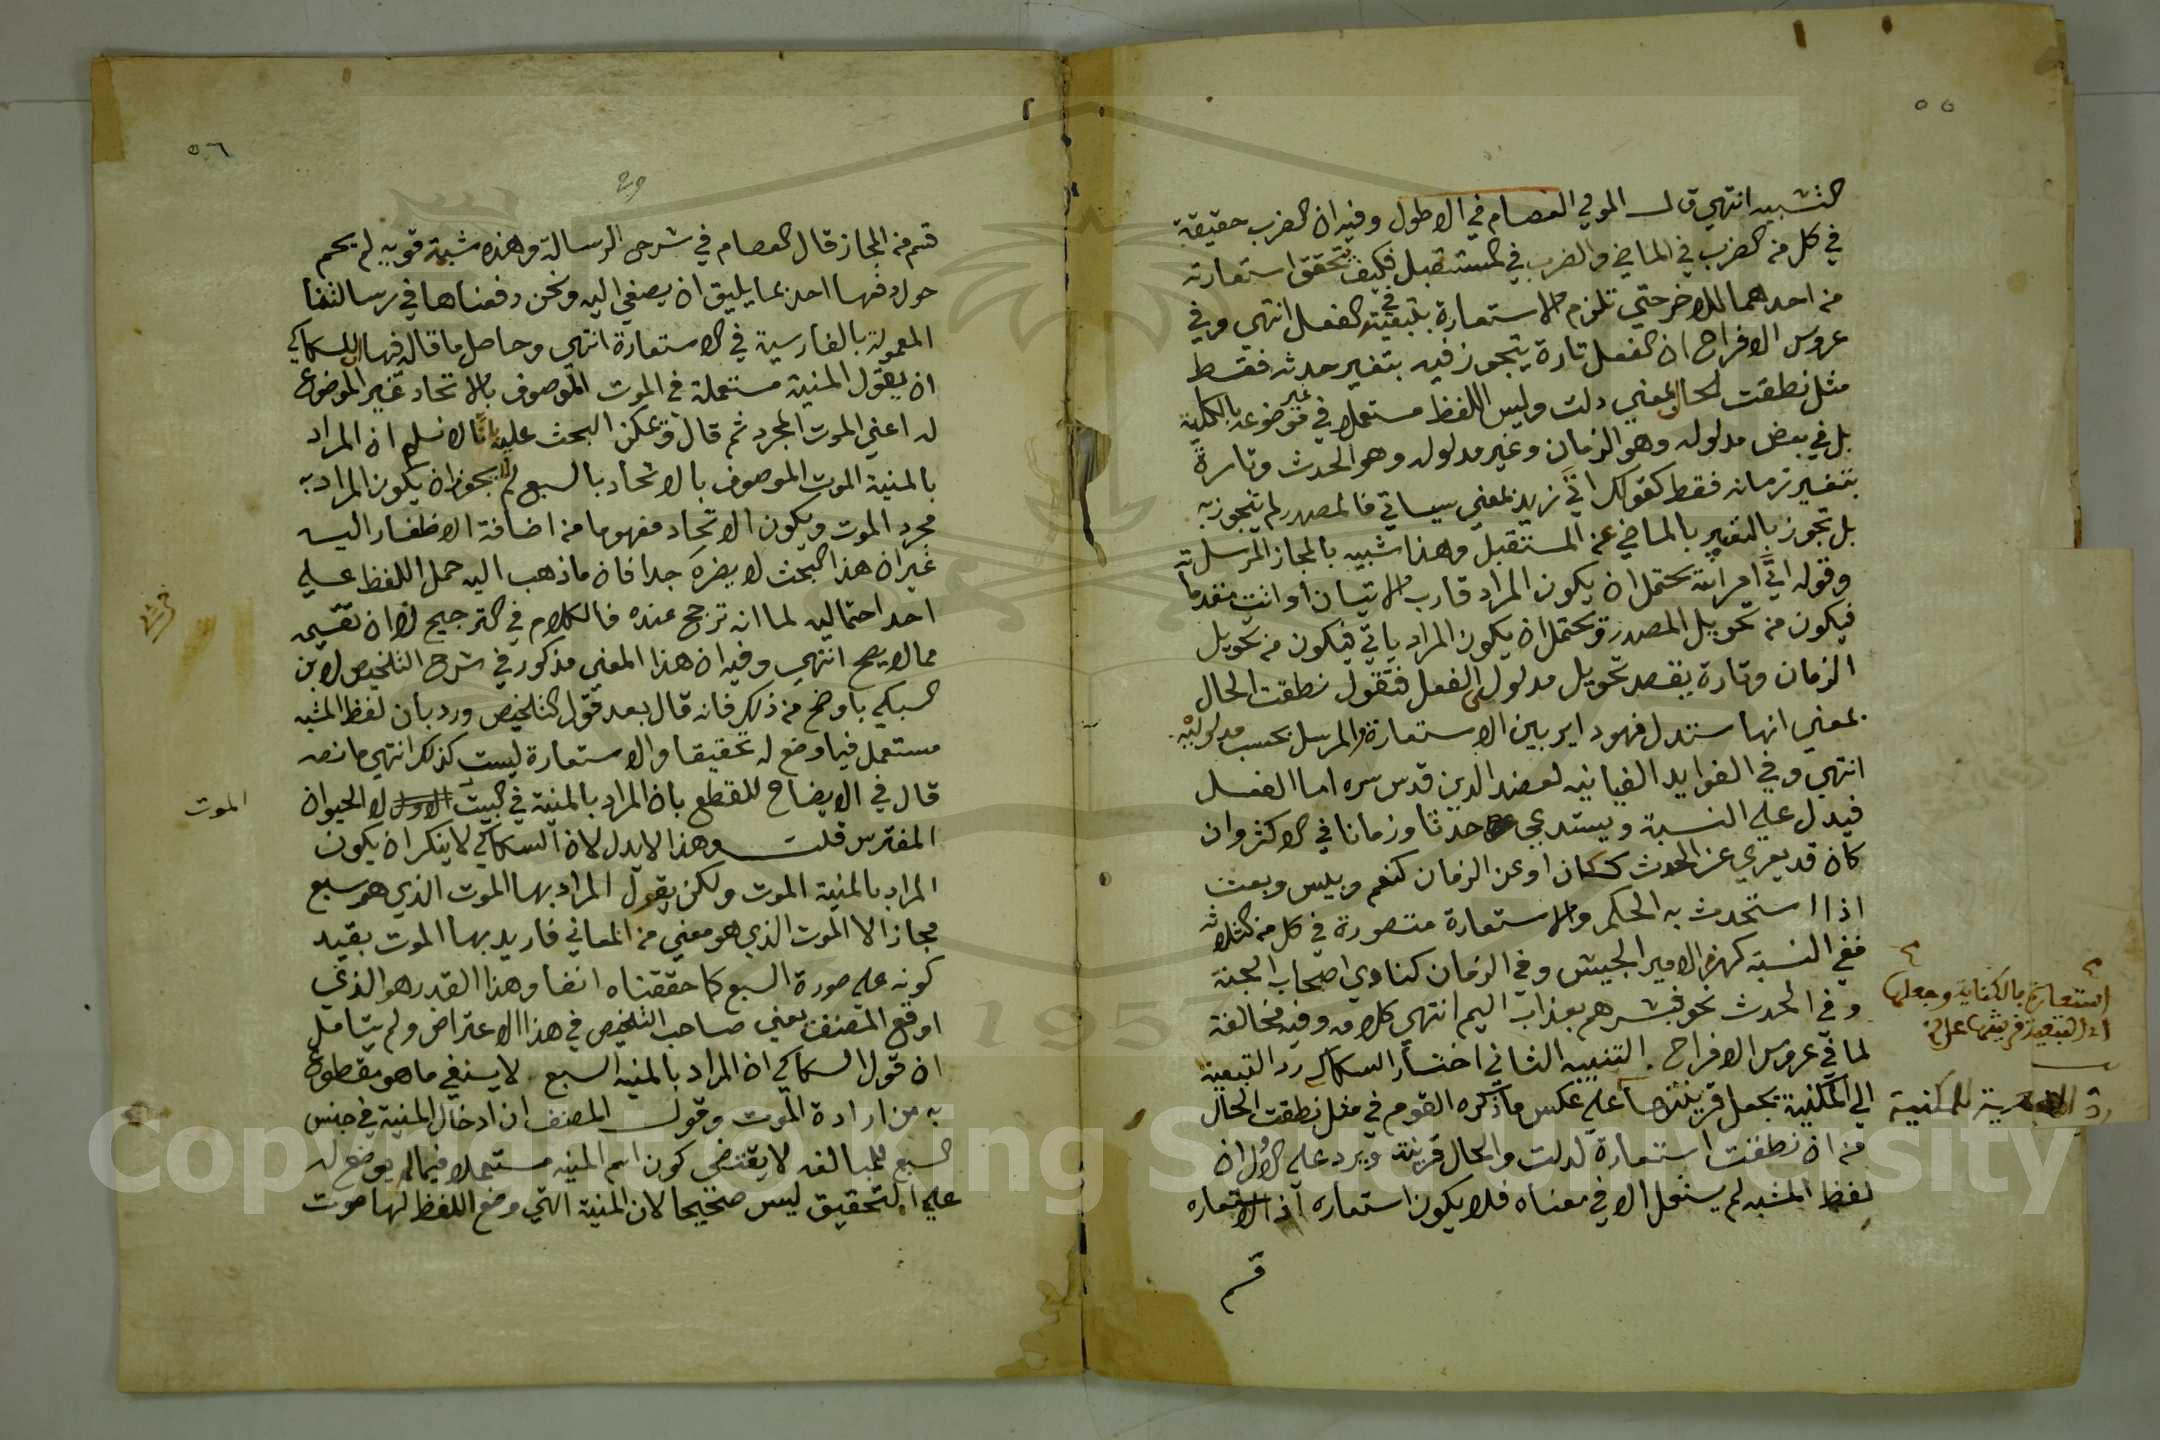 ٥٥
التشبيه انتهي قال المولي العصام في الاطول وفيه ان الضرب حقيقة
في كل من الضرب في الماضي والضرب في المستقبل فكيف تتحقق استعارته
من احدهما للاخر حتي تلزم الاستعارة بتبعيته في الفعل انتهي وفي
عروس الافراح ان الفعل تارة يتجوز فيه بتغير حدثه فقط
مثل نطقت الحال بمعني دلت وليس اللفظ مستعملا في غير موضوعه بالكلية
بل في بعض مدلوله وهو الزمان وغير مدلوله وهو الحدث وتارة
بتغير زمانه فقط كقولك اتي زيد بمعني سياتي فالمصدر لم يتجوز به
بل تجوز بالتغير بالماضي عن المستقبل وهذا شبيه بالمجاز المرسل
وقوله اتي امر الله يحتمل ان يكون المراد قارب الاتيان او اتيت مقدماته
فيكون من تحويل المصدر ويحتمل ان يكون المراد ياتي فيكون من تحويل
الزمان وتارة يقصد تحويل مدلولي الفعل فتقول نطقت الحال
بمعني انها ستدل فهو داير بين الاستعارة والمرسل بحسب مدلوليه
انتهي وفي الفوايد الغياثيه لعضد الدين قدس سره اما الفعل
فيدل علي النسبة ويستدعي حدثا وزمانا في الاكثر وان
كان قد يعري عن الحدث ككان او عن الزمان كنعم وبيس وبعت
اذا استحدث به الحكم والاستعارة متصورة في كل من الثلاثه
ففي النسبة كهزم الامير الجيش وفي الزمان كنادي اصحاب الجنة
وفي الحدث نحو فبشرهم بعذاب اليم انتهي كلامه وفيه مخالفة
لما في عروس الافراح . التنبيه الثاني اختار السكاكي رد التبعية
الي المكنية بجعل قرينتها علي عكس ما ذكره القوم في مثل نطقت الحال
من ان نطقت استعارة لدلت والحال قرينة ويرد عليه الاول ان
لفظ المشبه لم يستعمل الا في معناه فلا يكون استعارة اذ الاستعاره
قسم
استعارة بالكناية وجعلها
التبعية قرينتها علي
للمكنية
٥٦
قسم من المجاز قال العصام في شرح الرسالة وهذه شبهة قوية لم يحم
حول دفعها احد بما يليق ان يصغي اليه ونحن دفعناها في رسالتنا
المعمولة بالفارسية في الاستعارة انتهي وحاصل ما قاله فيها ان للسكاكي
ان يقول المنية مستعملة في الموت الموصوف بالاتحاد غير الموضوع
له اعني الموت المجرد ثم قال ويمكن البحث عليه بانا لا نسلم ان المراد
بالمنية الموت الموصوف بالاتحاد بالسبع لم لا يجوز ان يكون المراد به
مجرد الموت ويكون الاتحاد مفهوما من اضافة الاظفار اليه
غير ان هذا البحث لا يضره جدا فان ما ذهب اليه حمل اللفظ علي
احد احتماليه لما انه ترجح عنده فالكلام في الترجيح لا ان تفسيره
مما لا يصح انتهي وفيه ان هذا المعني مذكور في شرح التلخيص لابن
السبكي باوضح من ذلك فانه قال بعد قول التلخيص ورد بان لفظ المشبه
مستعمل فيما وضع له تحقيقا والاستعارة ليست كذلك انتهي ما نصه
قال في الايضاح للقطع بان المراد بالمنية في البيت لا الحيوان
الموت
المفترس قلت وهذا لا يدل لان السكاكي لا ينكر ان يكون
المراد بالمنية الموت ولكن يقول المراد بها الموت الذي هو سبع
مجازا لا الموت الذي هو معني من المعاني فاريد بها الموت بقيد
كونه علي صورة السبع كما حققناه انفا وهذا القدر هو الذي
اوقع المصنف يعني صاحب التلخيص في هذا الاعتراض ولم يتامل
ان قول السكاكي ان المراد بالمنيه السبع لا ينفي ما هو مقطوع
به من ارادة الموت وقول المصنف ان ادخال المنية في جنس
السبع للمبالغه لا يقتضي كون اسم المنيه مستعملا فيما لم يوضع له
علي التحقيق ليس صحيحا لان المنية التي وضع اللفظ لها موت